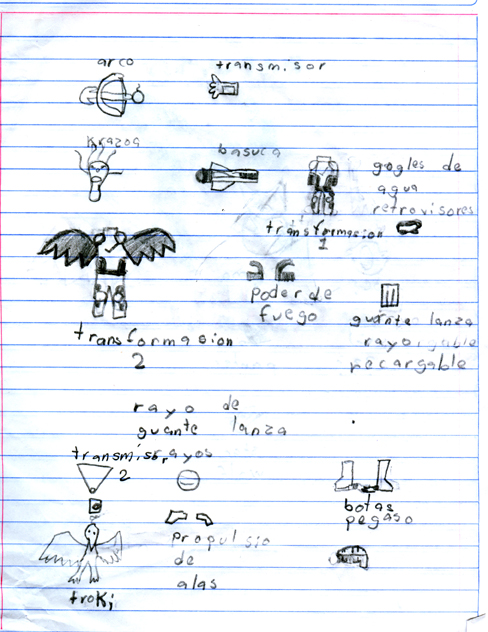 arco
transmisor
Krazoa
basuca
gogles de
agua
retrovisores
transformacion
1
poder de
fuego
guante lanza
rayo
recargable
transformacion
2
rayo de
guante lanza
rayos
transmisor
2
botas
pegaso
propulsio
de
alas
troki